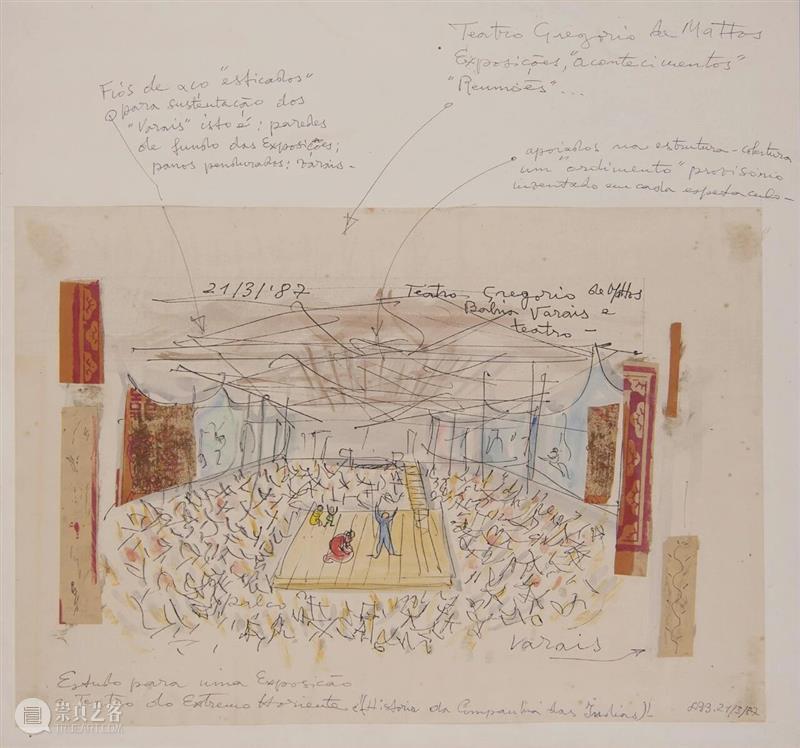 Teatro Gregorio de Mattos
Exposições, "acontecimentos"
"Reuniões"...
Fios de aço "esticados"
para sustentação dos
"Varais" isto é: paredes
de fundo das Exposições;
panos pendurados; varais-
apoiados na estrutura-cobertura
um "ordimento" provisório
inventado em cada espetaculo-
21/3/'87
Teatro Gregorio de Mattos
Bahia Varais e
teatro-
palco
varais
Estudo para uma Exposição
Teatro do Extremo Horiente e (Historia da Companhia das Indias)!
21/3/87
崇真艺客